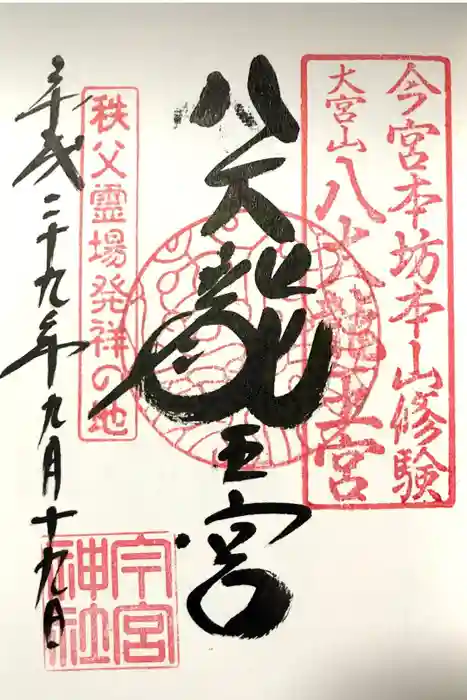 今宮本坊本山修験
大宮山八大龍王宮
八大龍王宮
秩父霊場発祥の地
平成二十九年九月十九日
今宮
神社